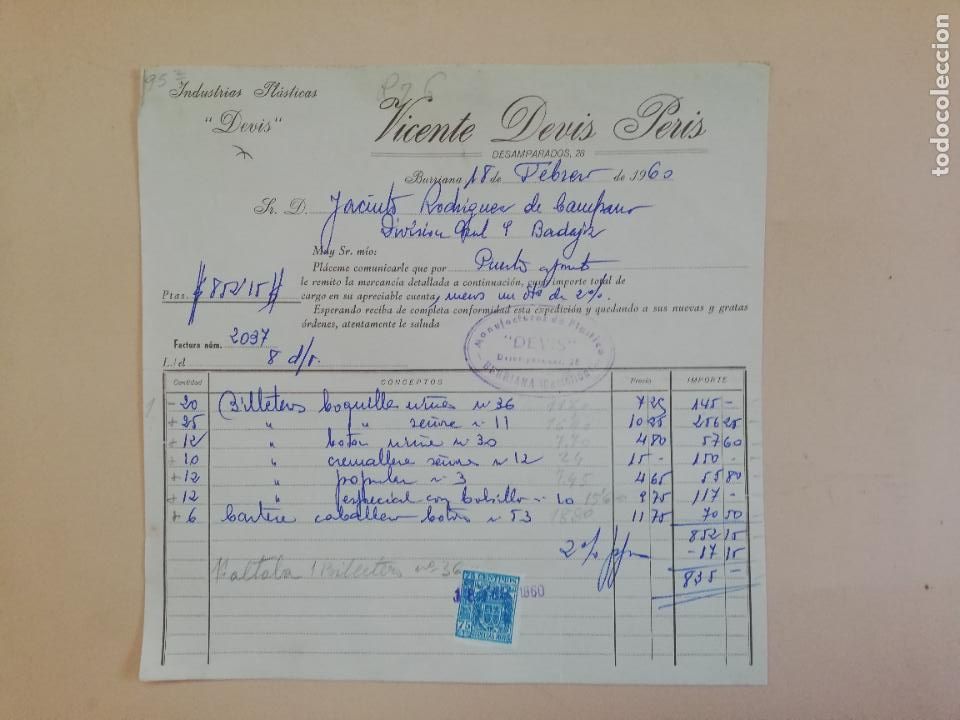 95
Industrias Plásticas
"Devis"
Vicente Devis Peris
DESAMPARADOS, 28
Burriana 18 de Febrer de 1960
Sr. D. Jacinto Rodriguez de Campano
Division 9 Badajz
Muy Sr. mío:
Pláceme comunicarle que por Puerto
le remito la mercancía detallada a continuación, cuyo importe total de
Ptas. # 852'15 #
cargo en su apreciable cuenta, menos un dto de 2%.
Esperando reciba de completa conformidad esta expedición y quedando a sus nuevas y gratas
órdenes, atentamente le saluda
Factura núm. 2037
L/ el 8 d/f.
Manufacturas de Plástico
"DEVIS"
Desamparados, 28
BURRIANA (Castellón)
Cantidad CONCEPTOS Precio IMPORTE
- 20 Billeters boquilla niñas nº 36 7 25 145 -
+ 25 " " señora nº 11 10 25 256 25
+ 12 " boton niñe nº 30 7.70 4 80 57 60
+ 10 " cremallera señora nº 12 24 15 - 150 -
+ 12 " popular nº 3 7.45 4 65 55 80
+ 12 " especial con bolsillo nº 10 15'6 9 75 117 -
+ 6 Cartera caballero boton nº 53 18.80 11 75 70 50
852 15
2% p/p - 17 15
835 -
Maltaba 1 Billetero nº 36
1960
75
todocoleccion